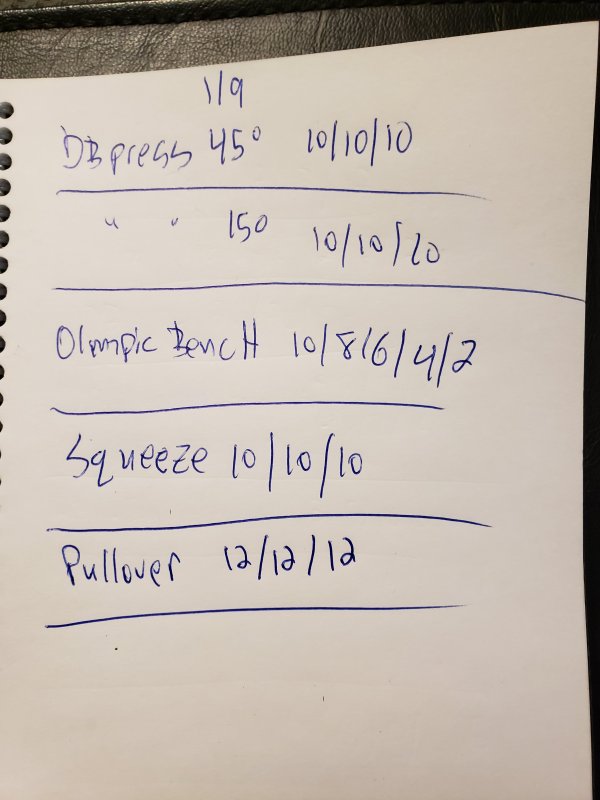 1/9
DB press 45° 10/10/10
" " 15° 10/10/10
Olympic Bench 10/8/6/4/2
Squeeze 10/10/10
Pullover 12/12/12